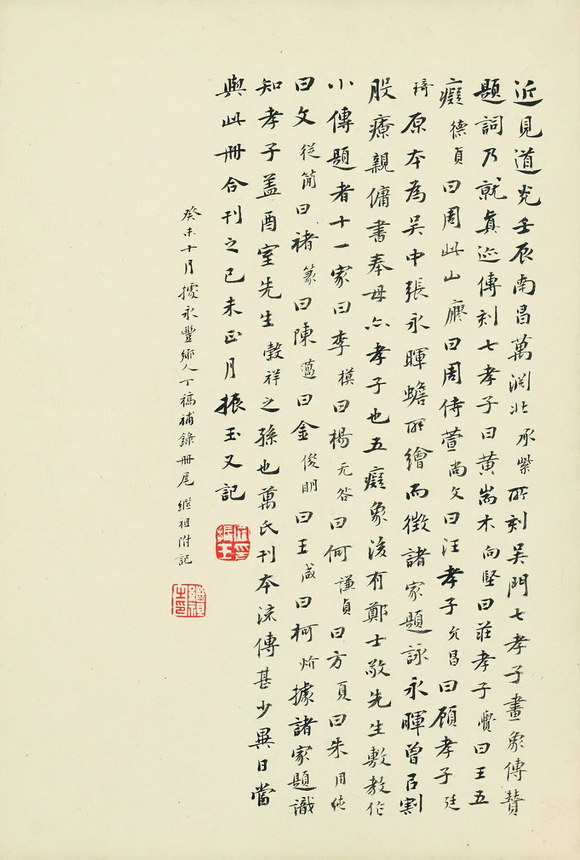 近見道光壬辰南昌萬淵北承紫所刻吳門七孝子畫象傳贊
題詞乃就真迹傳刻七孝子曰黃嵓木向堅曰莊孝子曰王五
癡德貞曰周此山曰周侍萱尚文曰汪孝子允昌曰顧孝子廷
琦原本為吳中張永暉蟾所繪而徵諸家題詠永暉曾㠯割
股療親傭書奉母亦孝子也五癡象後有鄭士敬先生敷教作
小傳題者十一家曰李模曰楊无咎曰何謙貞曰方夏曰朱用純
曰文從簡曰褚篆曰陳曰金俊明曰王咸曰柯炌據諸家題識
知孝子蓋酉室先生穀祥之孫也萬氏刊本流傳甚少異日當
與此冊合刊之己未正月振玉又記
癸未十月據永豐鄉人丁稿補錄冊尾 繼祖附記